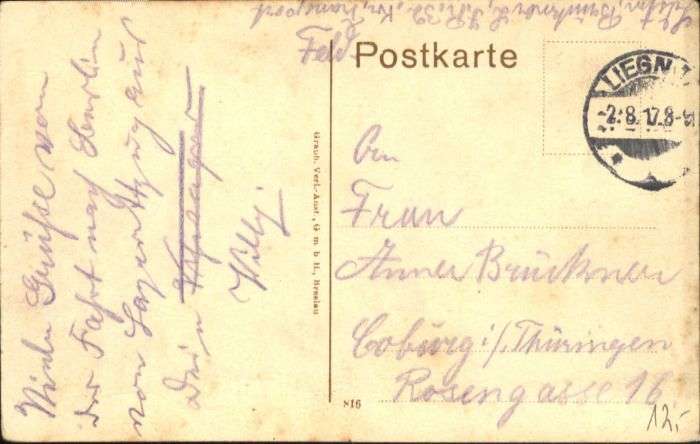 Feld Postkarte
LIEGN
-2.8.17.8-9
An
Frau
Anna Brückner
Coburg i/Thüringen
Rosengasse 16
Viele Grüße von
der Fahrt nach Berlin
von Lazarettzug aus
Dein
Willy.
Graph. Verl.-Anst., G m b H., Breslau
816
12,-